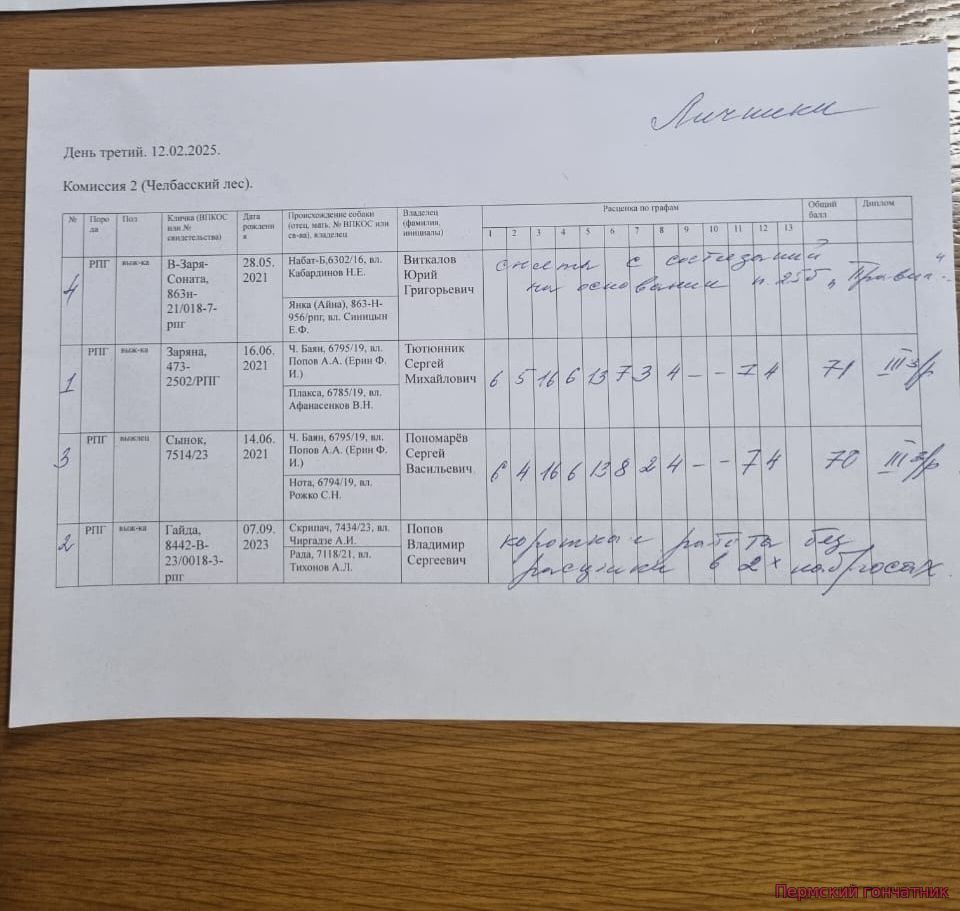 Личники
День третий. 12.02.2025.
Комиссия 2 (Челбасский лес).
№ Поро да Пол Кличка (ВПКОС или № свидетельства) Дата рождени я Происхождение собаки (отец, мать, № ВПКОС или св-ва), владелец Владелец (фамилия, инициалы) Расценка по графам Общий балл Диплом
1 2 3 4 5 6 7 8 9 10 11 12 13
4 РПГ выж-ка В-Заря-Соната, 863н-21/018-7-рпг 28.05. 2021 Набат-Б,6302/16, вл. Кабардинов Н.Е. Виткалов Юрий Григорьевич сняты с состязаний
на основании п. 25б „Правил“
Янка (Айна), 863-Н-956/рпг, вл. Синицын Е.Ф.
1 РПГ выж-ка Заряна, 473-2502/РПГ 16.06. 2021 Ч. Баян, 6795/19, вл. Попов А.А. (Ерин Ф. И.) Тютюнник Сергей Михайлович 6 5 16 6 13 7 3 4 – – 7 4 71 III
Плакса, 6785/19, вл. Афанасенков В.Н.
3 РПГ выжлец Сынок, 7514/23 14.06. 2021 Ч. Баян, 6795/19, вл. Попов А.А. (Ерин Ф. И.) Пономарёв Сергей Васильевич 6 4 16 6 13 8 2 4 – – 7 4 70 III
Нота, 6794/19, вл. Рожко С.Н.
2 РПГ выж-ка Гайда, 8442-В-23/0018-3-рпг 07.09. 2023 Скрипач, 7434/23, вл. Чиргадзе А.И. Попов Владимир Сергеевич короткая работа без
расценки в 2х набросах.
Рада, 7118/21, вл. Тихонов А.Л.
Пермский гончатник